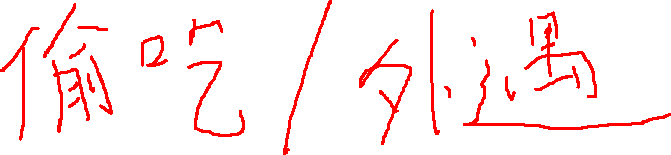 偷吃/外遇